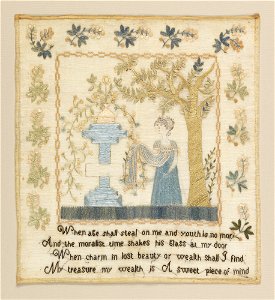 When age shall steal on me and youth is no more
And the moralist time shakes his glass at my door
When charm in lost beauty or wealth shall I find
My treasure my wealth is A sweet piece of mind